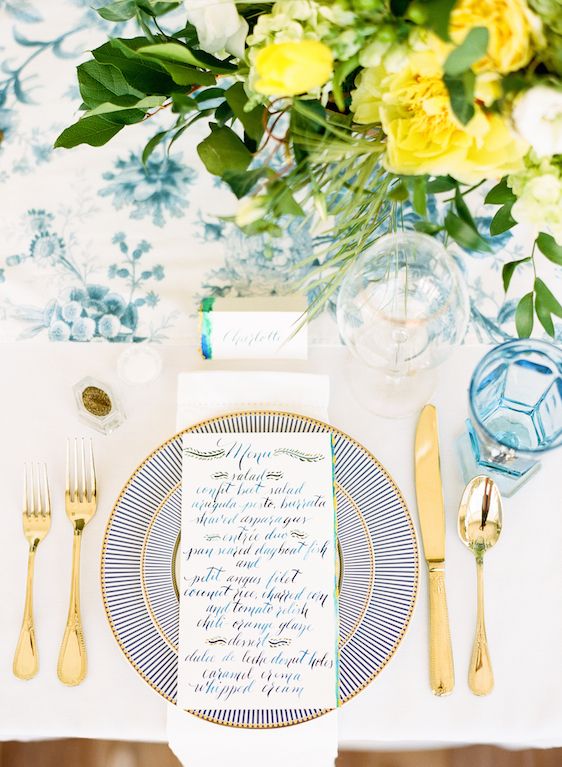 Charlotte
Menu
salad
confit beet salad
arugula pesto, burrata
shaved asparagus
entrée duo
pan seared dayboat fish
and
petit angus filet
coconut rice, charred corn
and tomato relish
chili-orange glaze
dessert
dulce de leche donut holes
caramel crema
whipped cream